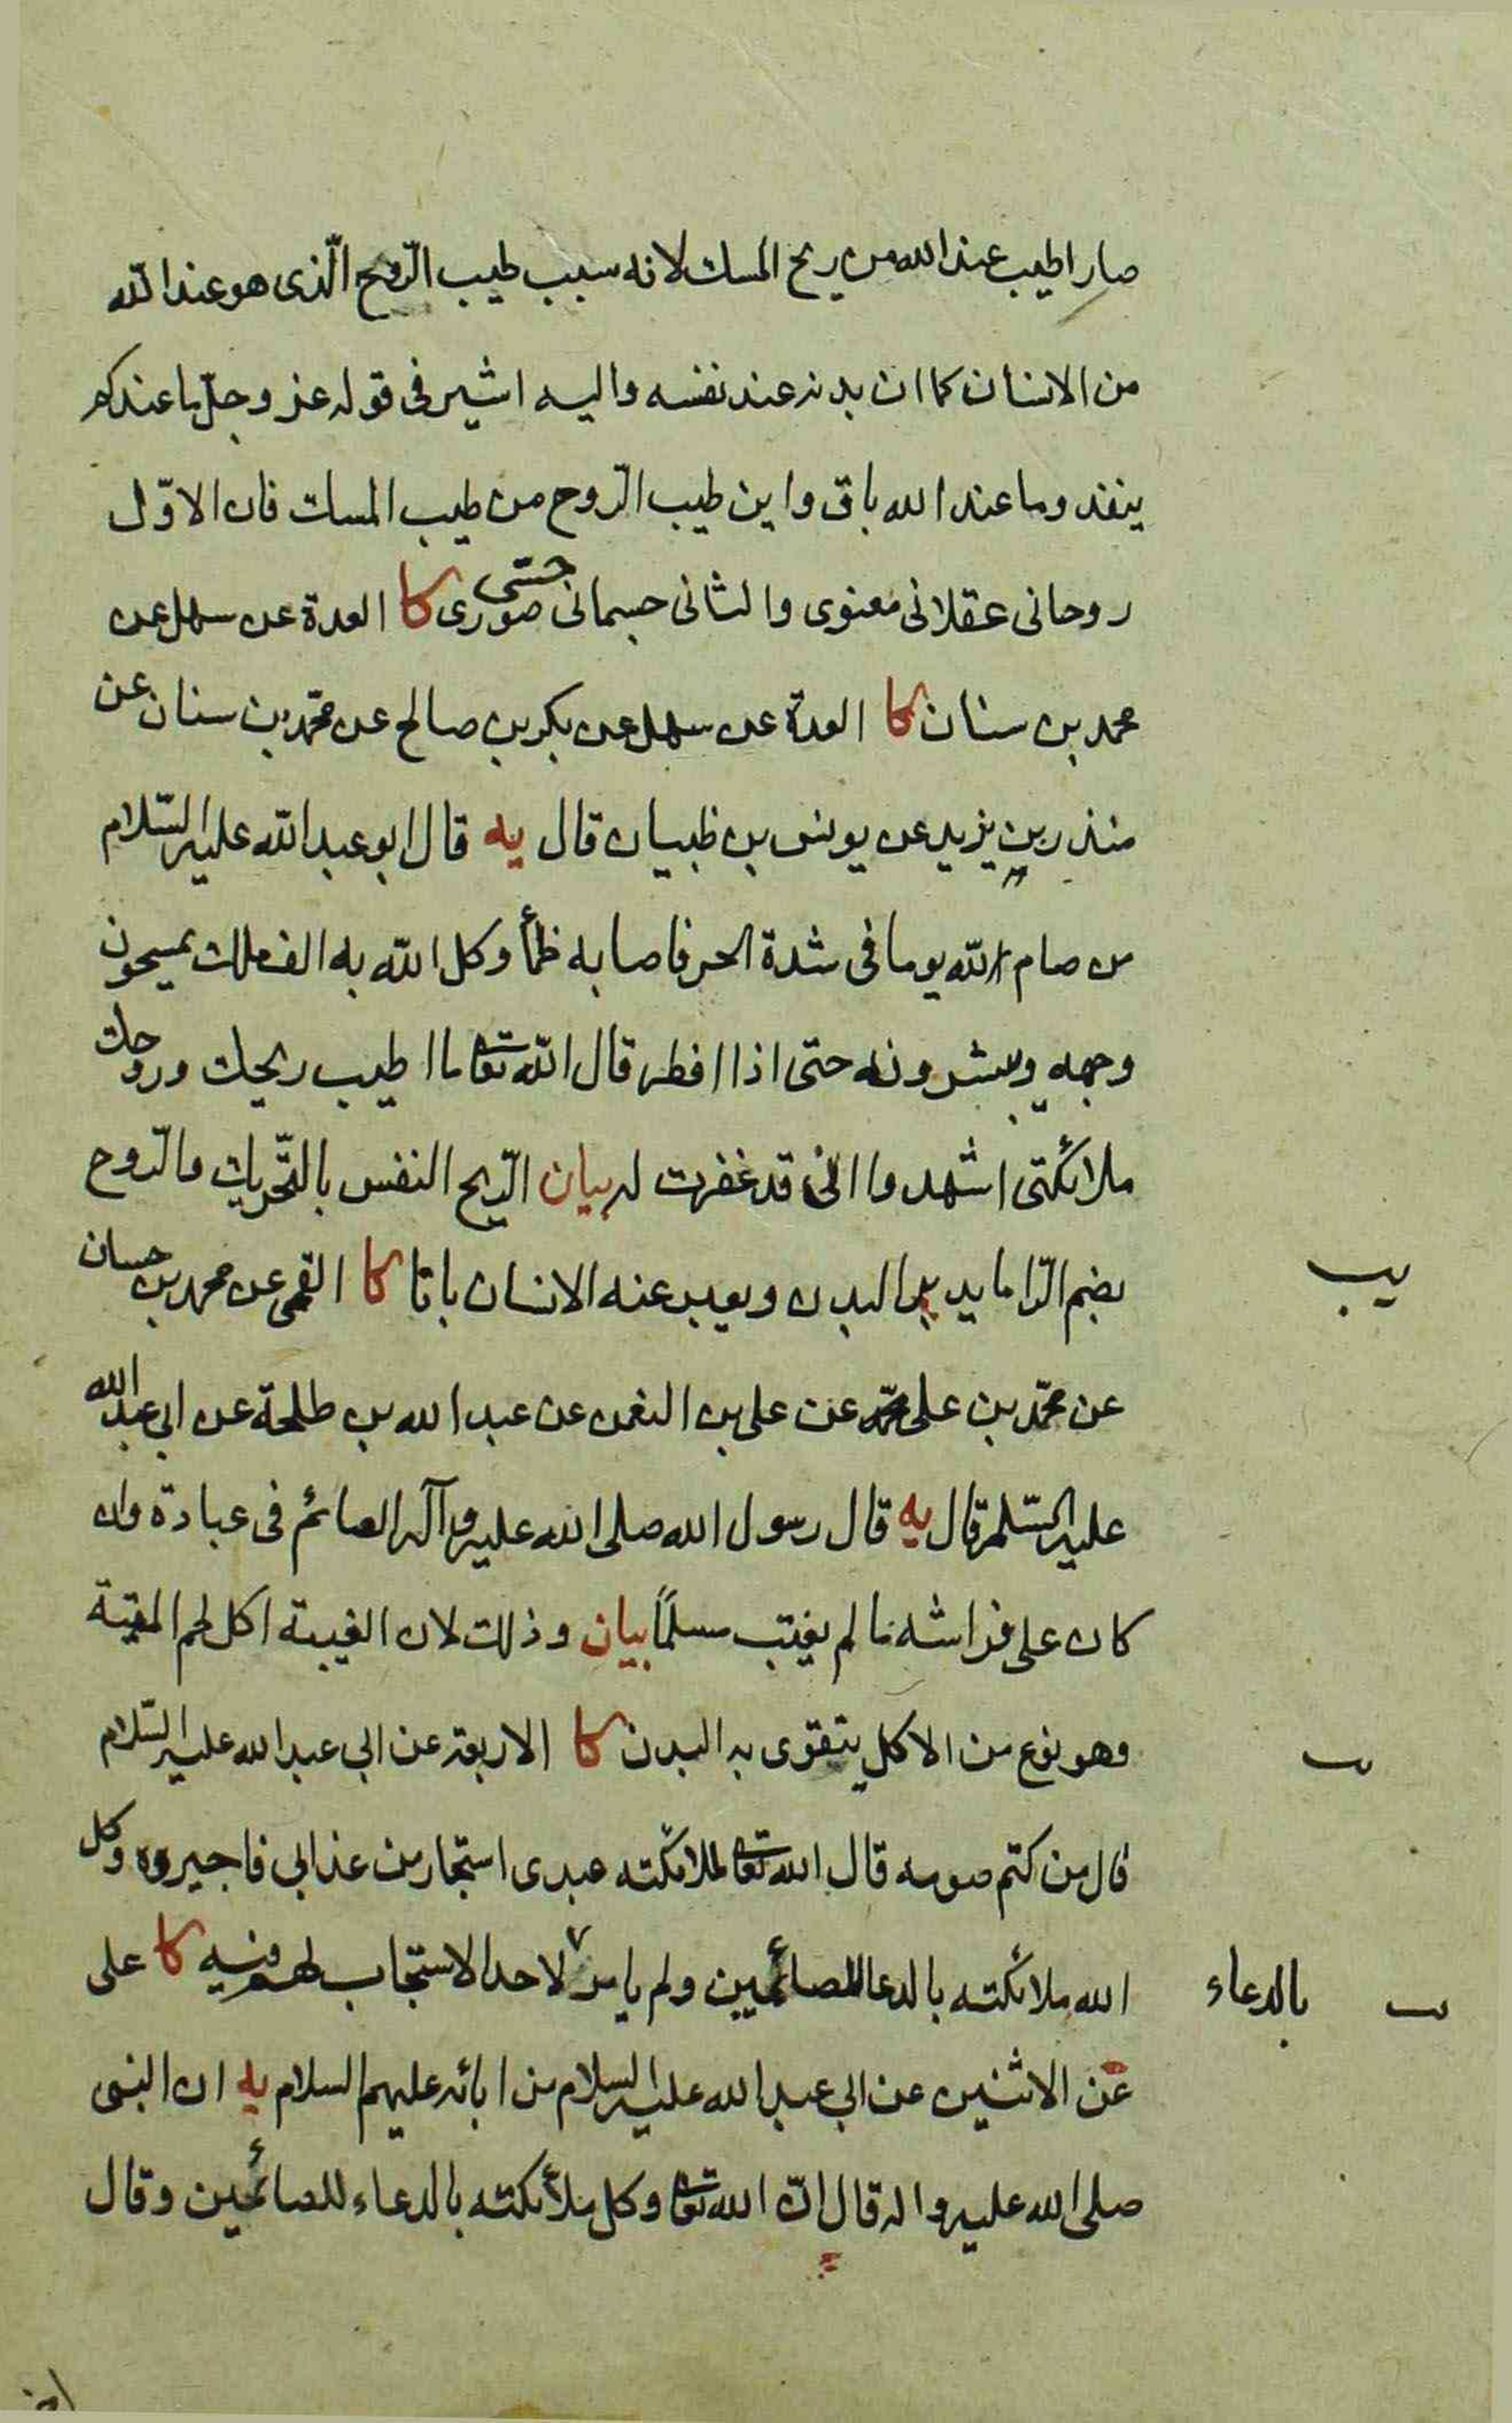 صار اطيب عند الله من ريح المسك لانه سبب طيب الرّوح الّذى هو عند اللّه
من الانسان كما ان بدنه عند نفسه واليه اشير فى قوله عز وجلّ ما عندكم
ينفد وما عند الله باق واين طيب الرّوح من طيب المسك فان الاوّل
روحانى عقلانى معنوى والثانى جسمانى حسّى صورى كا العدة عن سهل عن
محمد بن سنان كا العدة عن سهل عن بكر بن صالح عن محمّد بن سنان عن
منذر بن يزيد عن يونس بن ظبيان قال يه قال ابو عبد اللّه عليه السّلام
من صام للّه يوما فى شدة الحر فاصابه ظمأ وكل اللّه به الف ملك يمسحون
وجهه ويبشرونه حتى اذا افطر قال اللّه تعا ما اطيب ريحك وروحك
ملائكتى اشهدوا انى قد غفرت له بيان الرّيح النفس بالتّحريك والرّوح
بضم الرّا ما يدبر البدن ويعبر عنه الانسان بانا كا القمى عن محمد بن حسان
يب
عن محمّد بن على محمّد عن على بن النعمن عن عبد الله بن طلحة عن ابى عبد الله
عليه السّلم قال يه قال رسول الله صلى الله عليه وآله الصائم فى عبادة وان
كان على فراشه ما لم يغتب مسلمًا بيان وذلك لان الغيبة اكل لحم الميتة
وهو نوع من الاكل يتقوى به البدن كا الاربعة عن ابى عبد الله عليه السّلام
قال من كتم صومه قال الله تعا لملائكته عبدى استجار من عذابى فاجيروه وكل
الله ملائكته بالدعا للصائمين ولم يامر لاحد الا استجاب لهم فيه كا على
بالدعاء
عن الاثنين عن ابى عبد الله عليه السلام من ابائه عليهم السلام يه ان النبى
صلى الله عليه واله قال انّ الله تعا وكل ملائكته بالدعاء للصائمين وقال